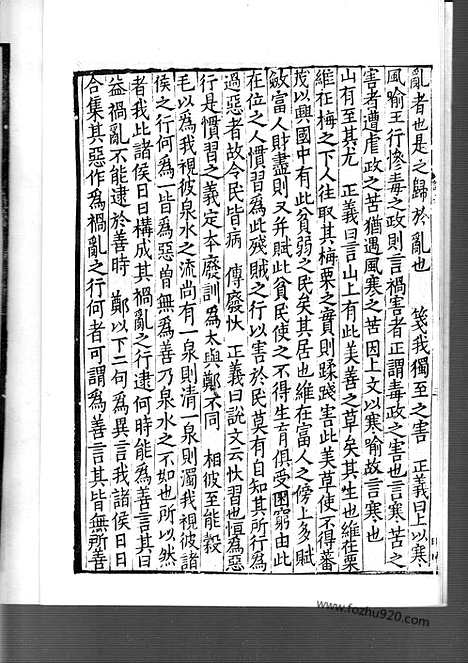 亂者也是之歸於亂也　箋我獨至之害　正義曰上以寒
風喻王行慘毒之政則言禍害者正謂毒政之害也言寒苦之
害者遭虐政之苦猶遇風寒之苦因上文以寒喻故言寒也
山有至其尤　正義曰言山上有此美善之草矣其生也維在栗
維在梅之下人往取其梅栗之實則蹂踐害此美草使不得蕃
茂以興國中有此貧弱之民矣其居也維在富人之傍上多賦
斂富人財盡則又并賦此貧民使之不得生育俱受困窮由此
在位之人慣習為此殘賊之行以害於民莫有自知其所行為
過惡者故令民皆病　傳廢忕　正義曰說文云忕習也恒為惡
行是慣習之義定本廢訓為太與鄭不同　相彼至能穀
毛以為我視彼泉水之流尚有一泉則清一泉則濁我視彼諸
侯之行何為一皆為惡曾無為善乃泉水之不如也所以然
者我此諸侯日日構成其禍亂之行逮何時能為善言其日
益禍亂不能逮於善時　鄭以下二句為異言我諸侯日日
合集其惡作為禍亂之行何者可謂為善言其皆無所善
www.fozhu920.com